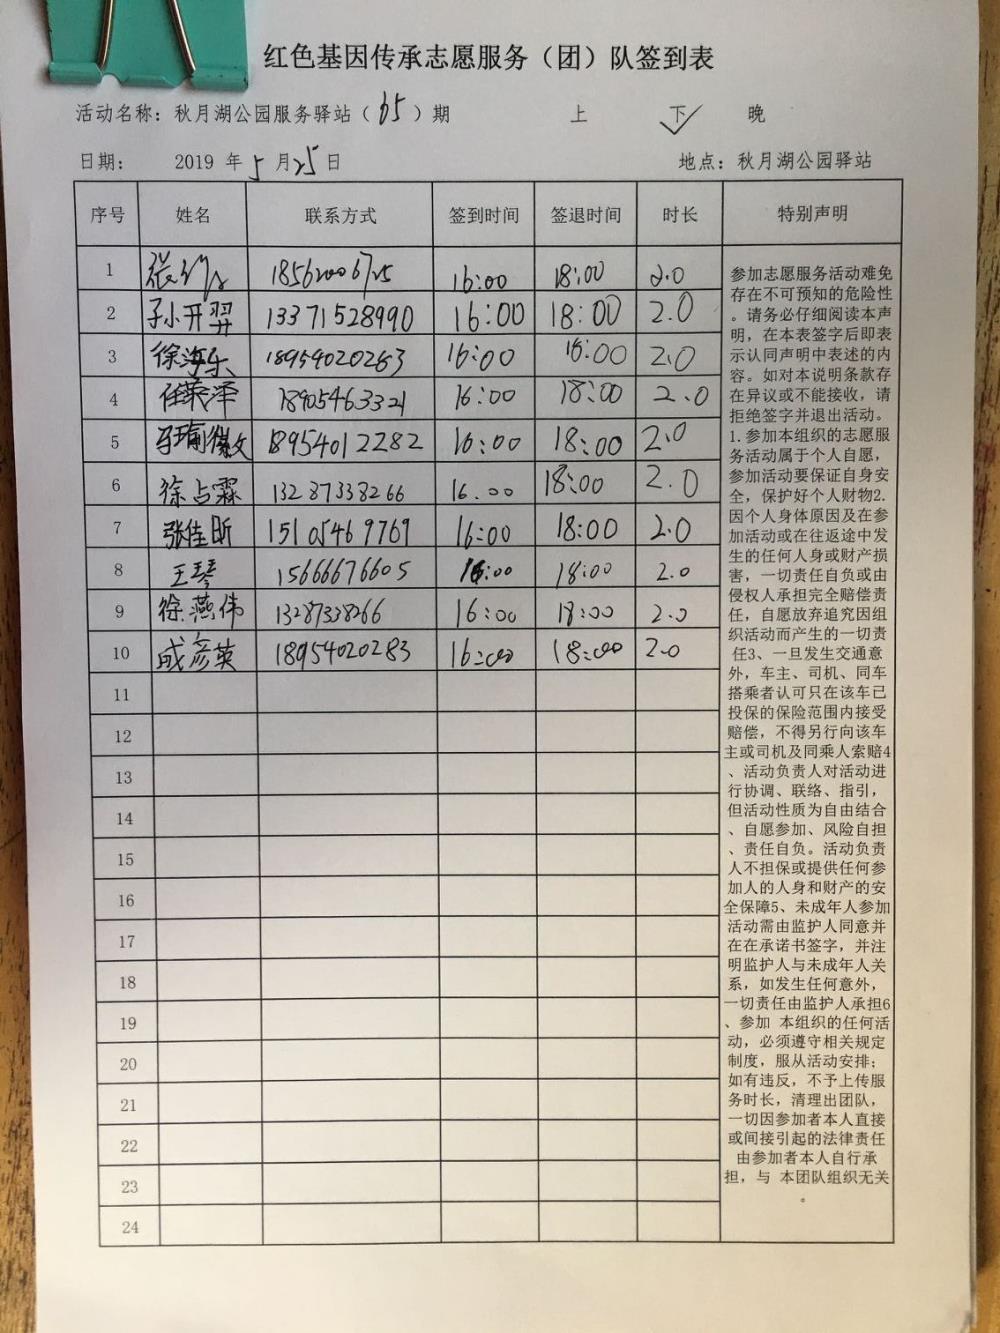 红色基因传承志愿服务（团）队签到表
活动名称：秋月湖公园服务驿站（65）期 上 下 ✓ 晚
日期： 2019 年 5 月 25 日 地点：秋月湖公园驿站
序号 姓名 联系方式 签到时间 签退时间 时长 特别声明
1 张 18562006725 16:00 18:00 2.0
2 孙开羿 13371528990 16:00 18:00 2.0
3 徐海乐 18954020283 16:00 18:00 2.0
4 任荣泽 18905463321 16:00 18:00 2.0
5 18954012282 16:00 18:00 2.0
6 徐占霖 13287338266 16.00 18:00 2.0
7 张佳昕 15105469769 16:00 18:00 2.0
8 王琴 15666676605 16:00 18:00 2.0
9 徐燕伟 13287338266 16:00 18:00 2.0
10 成彦英 18954020283 16:00 18:00 2.0
11
12
13
14
15
16
17
18
19
20
21
22
23
24
参加志愿服务活动难免
存在不可预知的危险性
。请务必仔细阅读本声
明，在本表签字后即表
示认同声明中表述的内
容。如对本说明条款存
在异议或不能接收，请
拒绝签字并退出活动。
1.参加本组织的志愿服
务活动属于个人自愿，
参加活动要保证自身安
全，保护好个人财物2.
因个人身体原因及在参
加活动或在往返途中发
生的任何人身或财产损
害，一切责任自负或由
侵权人承担完全赔偿责
任，自愿放弃追究因组
织活动而产生的一切责
任3、一旦发生交通意
外，车主、司机、同车
搭乘者认可只在该车已
投保的保险范围内接受
赔偿，不得另行向该车
主或司机及同乘人索赔4
、活动负责人对活动进
行协调、联络、指引，
但活动性质为自由结合
、自愿参加、风险自担
、责任自负。活动负责
人不担保或提供任何参
加人的人身和财产的安
全保障5、未成年人参加
活动需由监护人同意并
在在承诺书签字，并注
明监护人与未成年人关
系，如发生任何意外，
一切责任由监护人承担6
、参加 本组织的任何活
动，必须遵守相关规定
制度，服从活动安排；
如有违反，不予上传服
务时长，清理出团队，
一切因参加者本人直接
或间接引起的法律责任
由参加者本人自行承
担，与 本团队组织无关
。